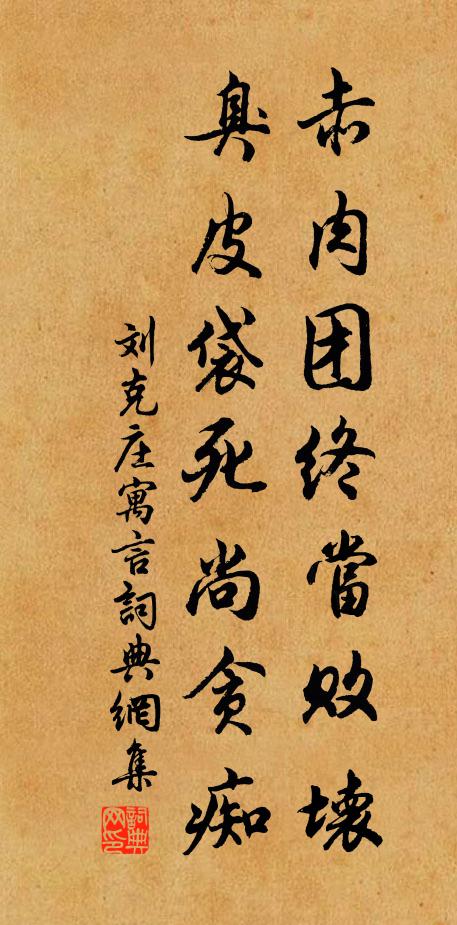 赤肉团终當败壞
臭皮袋死尚贪痴
刘克庄寓言詞典網集
詞典網印